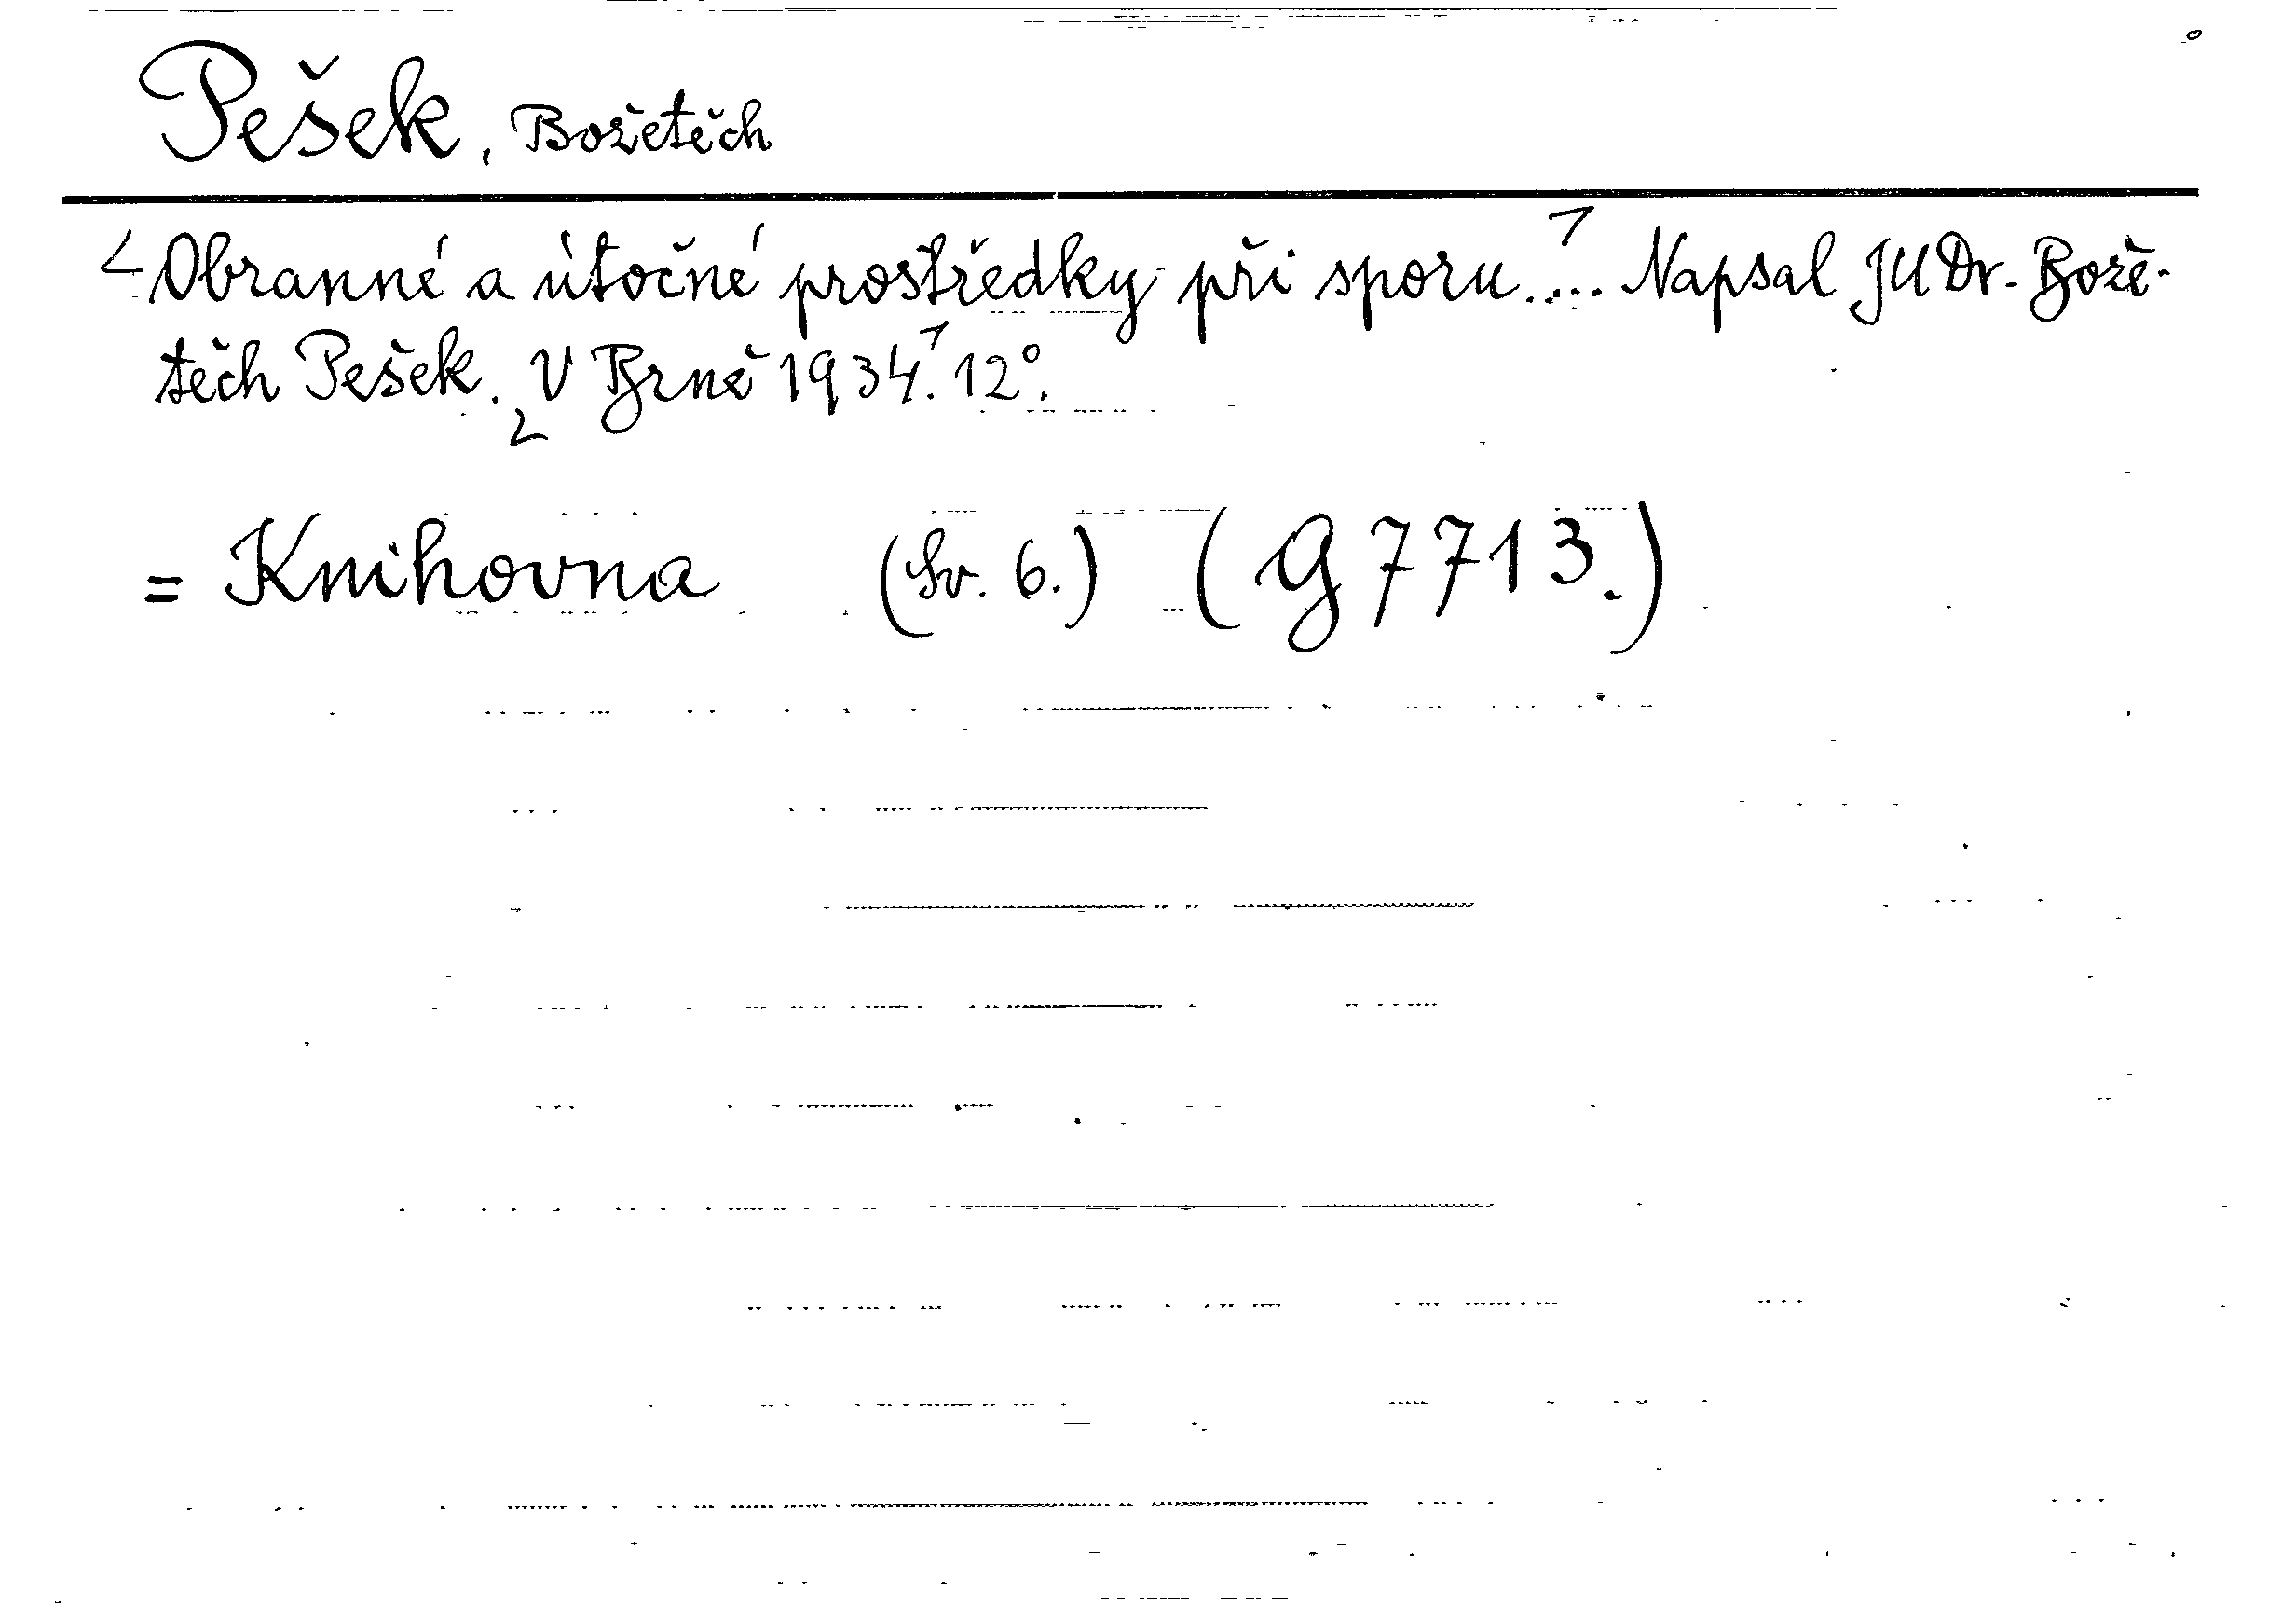 Pešek, Božetěch
Obranné a útočné prostředky při sporu.... Napsal JUDr. Bože-
těch Pešek. V Brně 1934. 12°.
= Knihovna (Sv. 6.) (G 7713.)